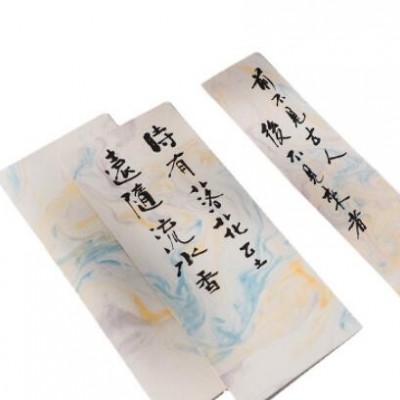 時有落花至
遠隨流水香
前不見古人
後不見來者